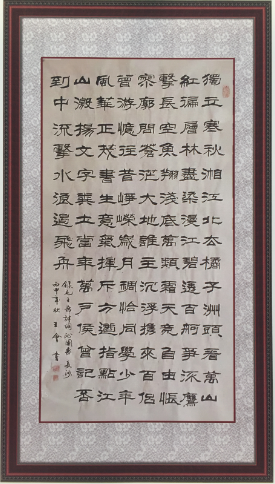 獨立寒秋湘江北去橘子洲頭看萬山
紅遍層林盡染漫江碧透百舸爭流鷹
擊長空魚翔淺底萬類霜天竞自由悵
寥廓問蒼茫大地誰主沉浮攜來百侣
曾游憶往昔崢嶸歲月稠恰同學少年
風華正茂書生意氣揮斥方遒指點江
山激揚文字糞土當年萬戶侯曾記否
到中流擊水浪遏飛舟
錄毛主席詩詞沁園春長沙
丙申年秋王書